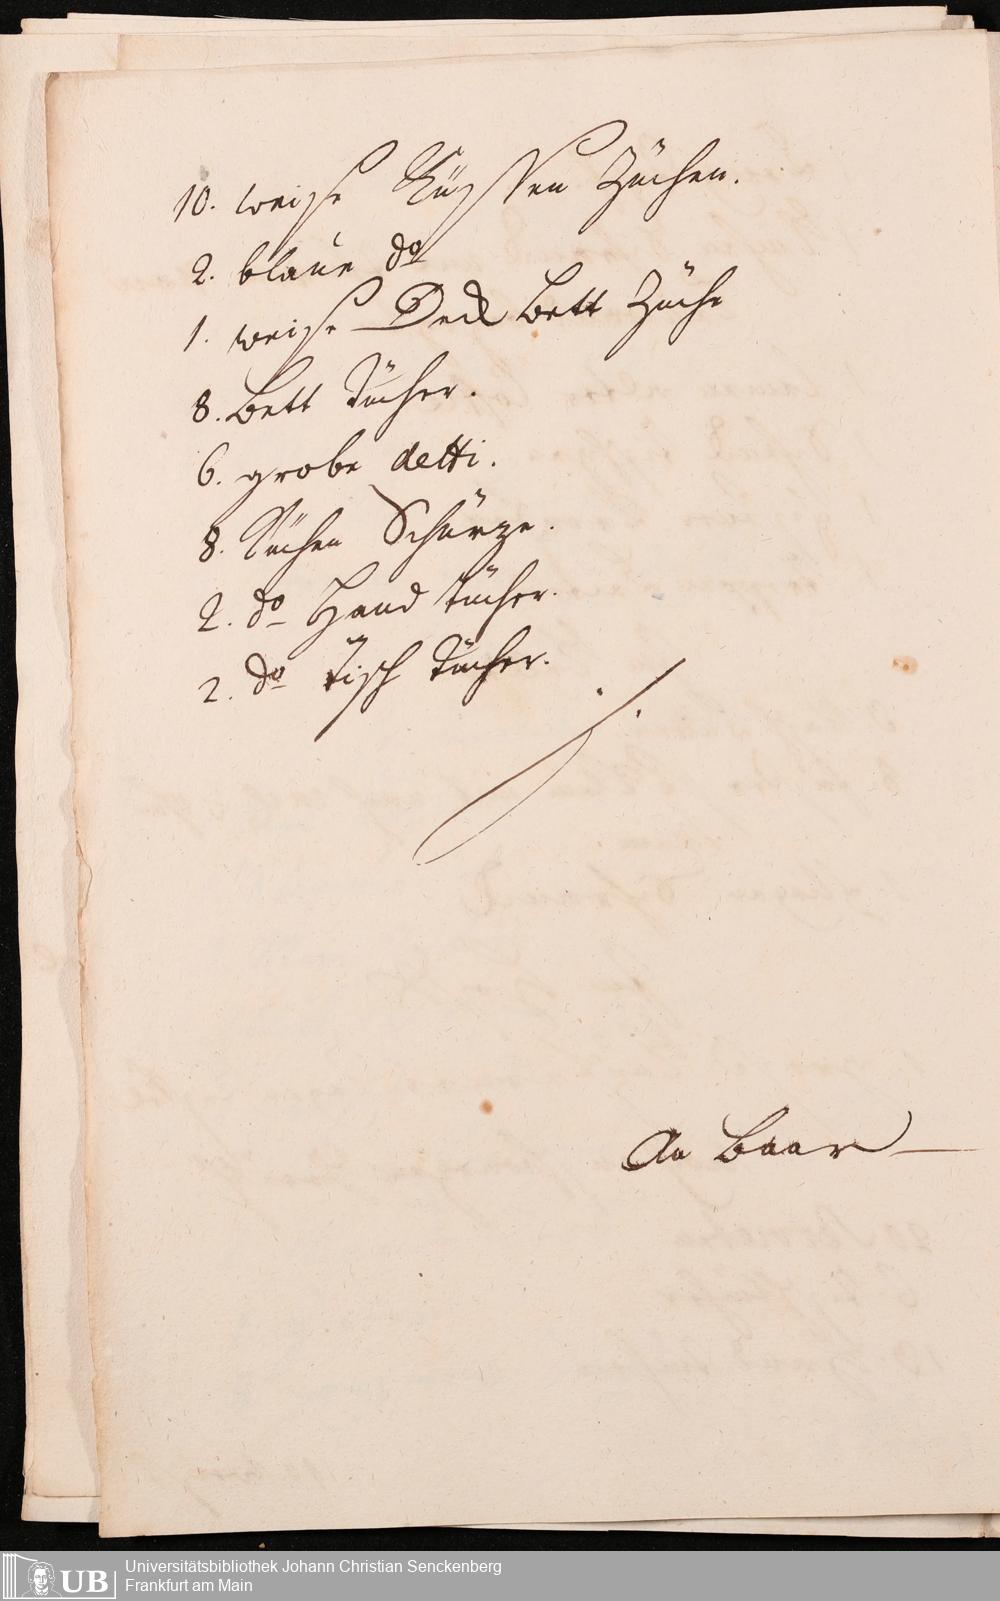 10. weise Küssen Züchen.
2. blaue do
1. weise Deck Bett Züche
8. Bett Tücher.
6. grobe detti.
8. Küchen Schürze.
2. do Hand Tücher.
2. do Tisch Tücher.
An Baar
UB
Universitätsbibliothek Johann Christian Senckenberg
Frankfurt am Main